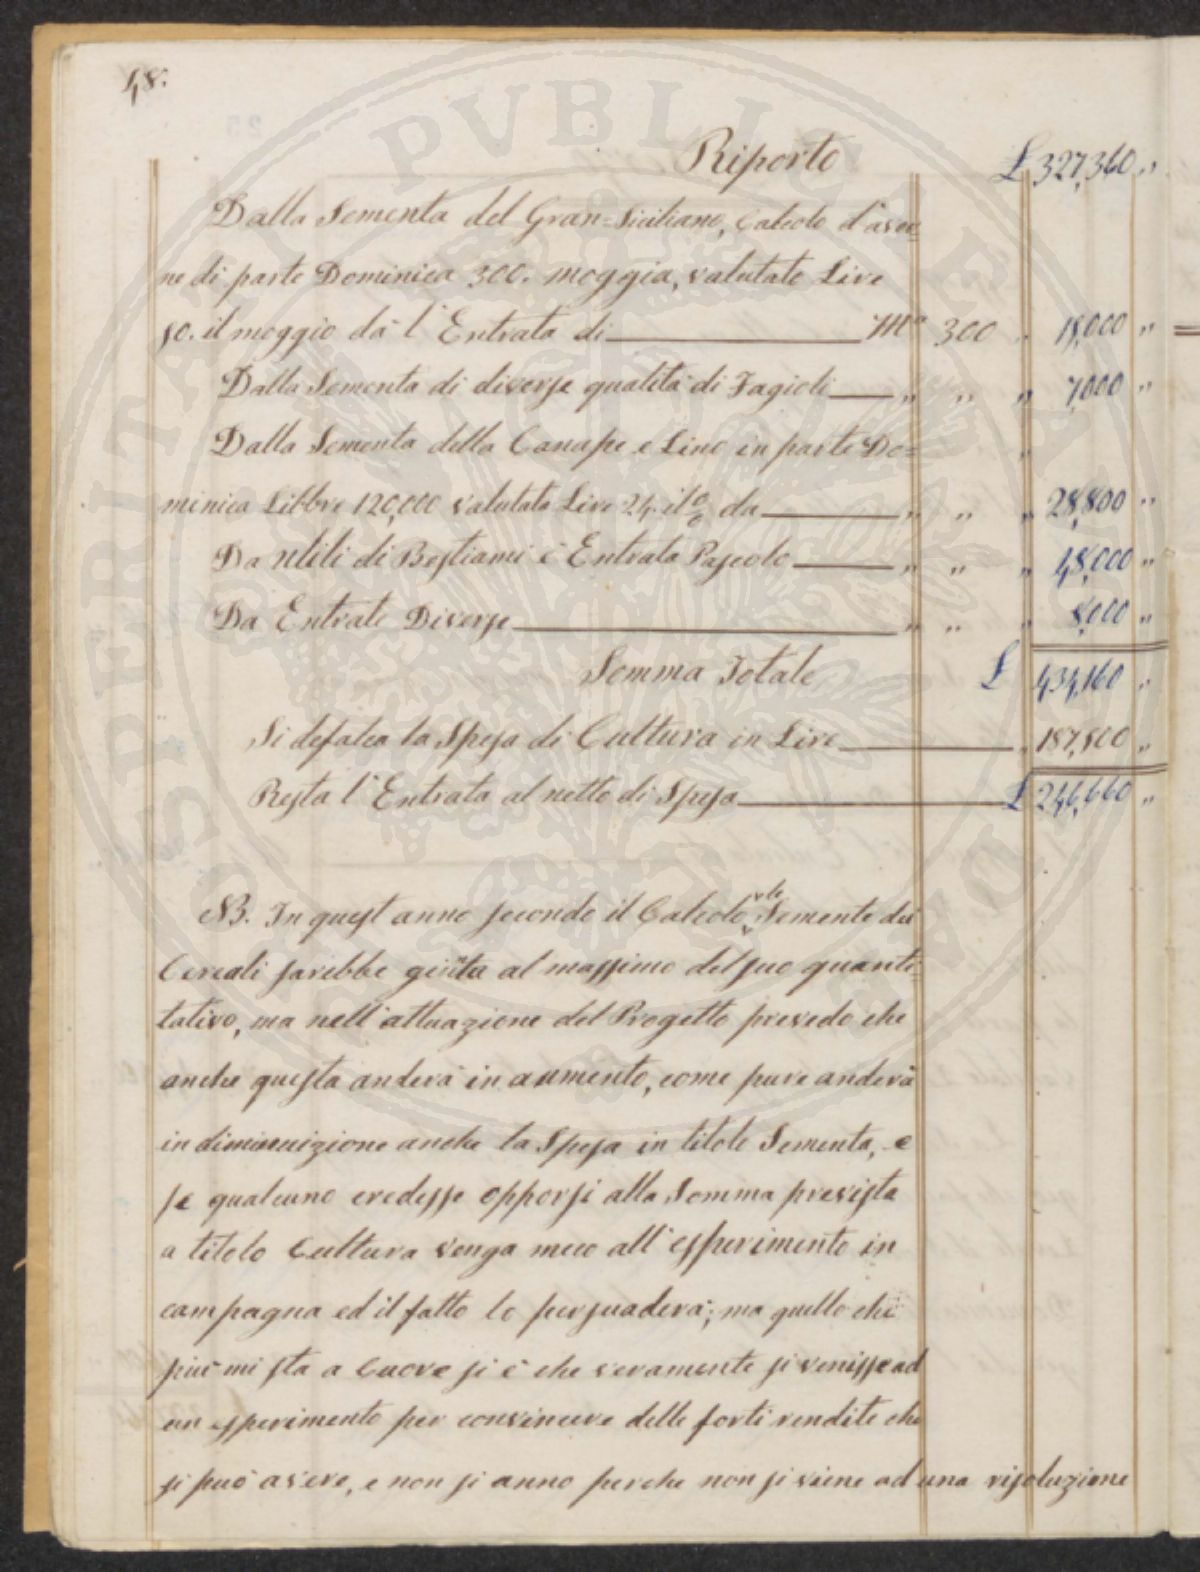 48.
Riporto £ 327,360 "
Dalla Sementa del Gran=Siciliano, Calcolo d'aver=
ne di parte Dominica 300. moggia, valutate Lire
50. il moggio dà l'Entrata di M.a 300 " 15,000 "
Dalla Sementa di diverse qualità di Fagioli " " " 7,000 "
Dalla Sementa della Canape e Lino in parte Do= "
minica Libbre 120,000 valutata Lire 24. il % da " " " 28,800 "
Da Utili di Bestiami è Entrata Pascolo " " " 48,000 "
Da Entrate Diverse " " " 8,000 "
Somma Totale £ 434,160 "
Si defalca la Spesa di Cultura in Lire " 187,500 "
Resta l'Entrata al netto di Spesa £ 246,660 "
NB. In quest anno secondo il Calcolo, le Semente dei
Cereali sarebbe giunta al massimo del suo quanti=
tativo, ma nell'attuazione del Progetto prevedo che
anche questa anderà in aumento, come pure anderà
in diminuizione anche la Spesa in titolo Sementa, e
se qualcuno credesse opporsi alla Somma prevista
a titolo Cultura venga meco all'esperimento in
campagna ed il fatto lo persuaderà; ma quello che
più mi sta a Cuore si è che veramente si venisse ad
un esperimento per convincere delle forti rendite che
si può avere, e non si anno perche non si viene ad una risoluzione
PROSPERITATI PVBLICAE AVGENDAE